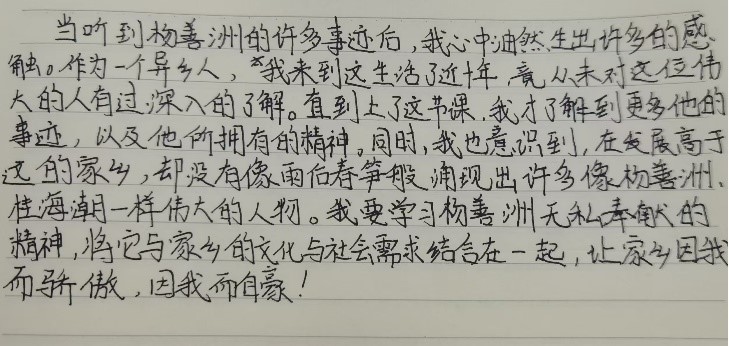 当听到杨善洲的许多事迹后，我心中油然生出许多的感
触。作为一个异乡人，我来到这生活了近十年，竟从未对这位伟
大的人有过深入的了解。直到上了这节课，我才了解到更多他的
事迹，以及他所拥有的精神。同时，我也意识到，在发展高于
这的家乡，却没有像雨后春笋般涌现出许多像杨善洲、
桂海潮一样伟大的人物。我要学习杨善洲无私奉献的
精神，将它与家乡的文化与社会需求结合在一起，让家乡因我
而骄傲，因我而自豪！